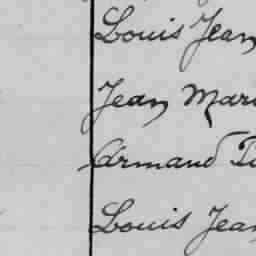 Louis Jean
Jean Mari
Armand
Louis Jean